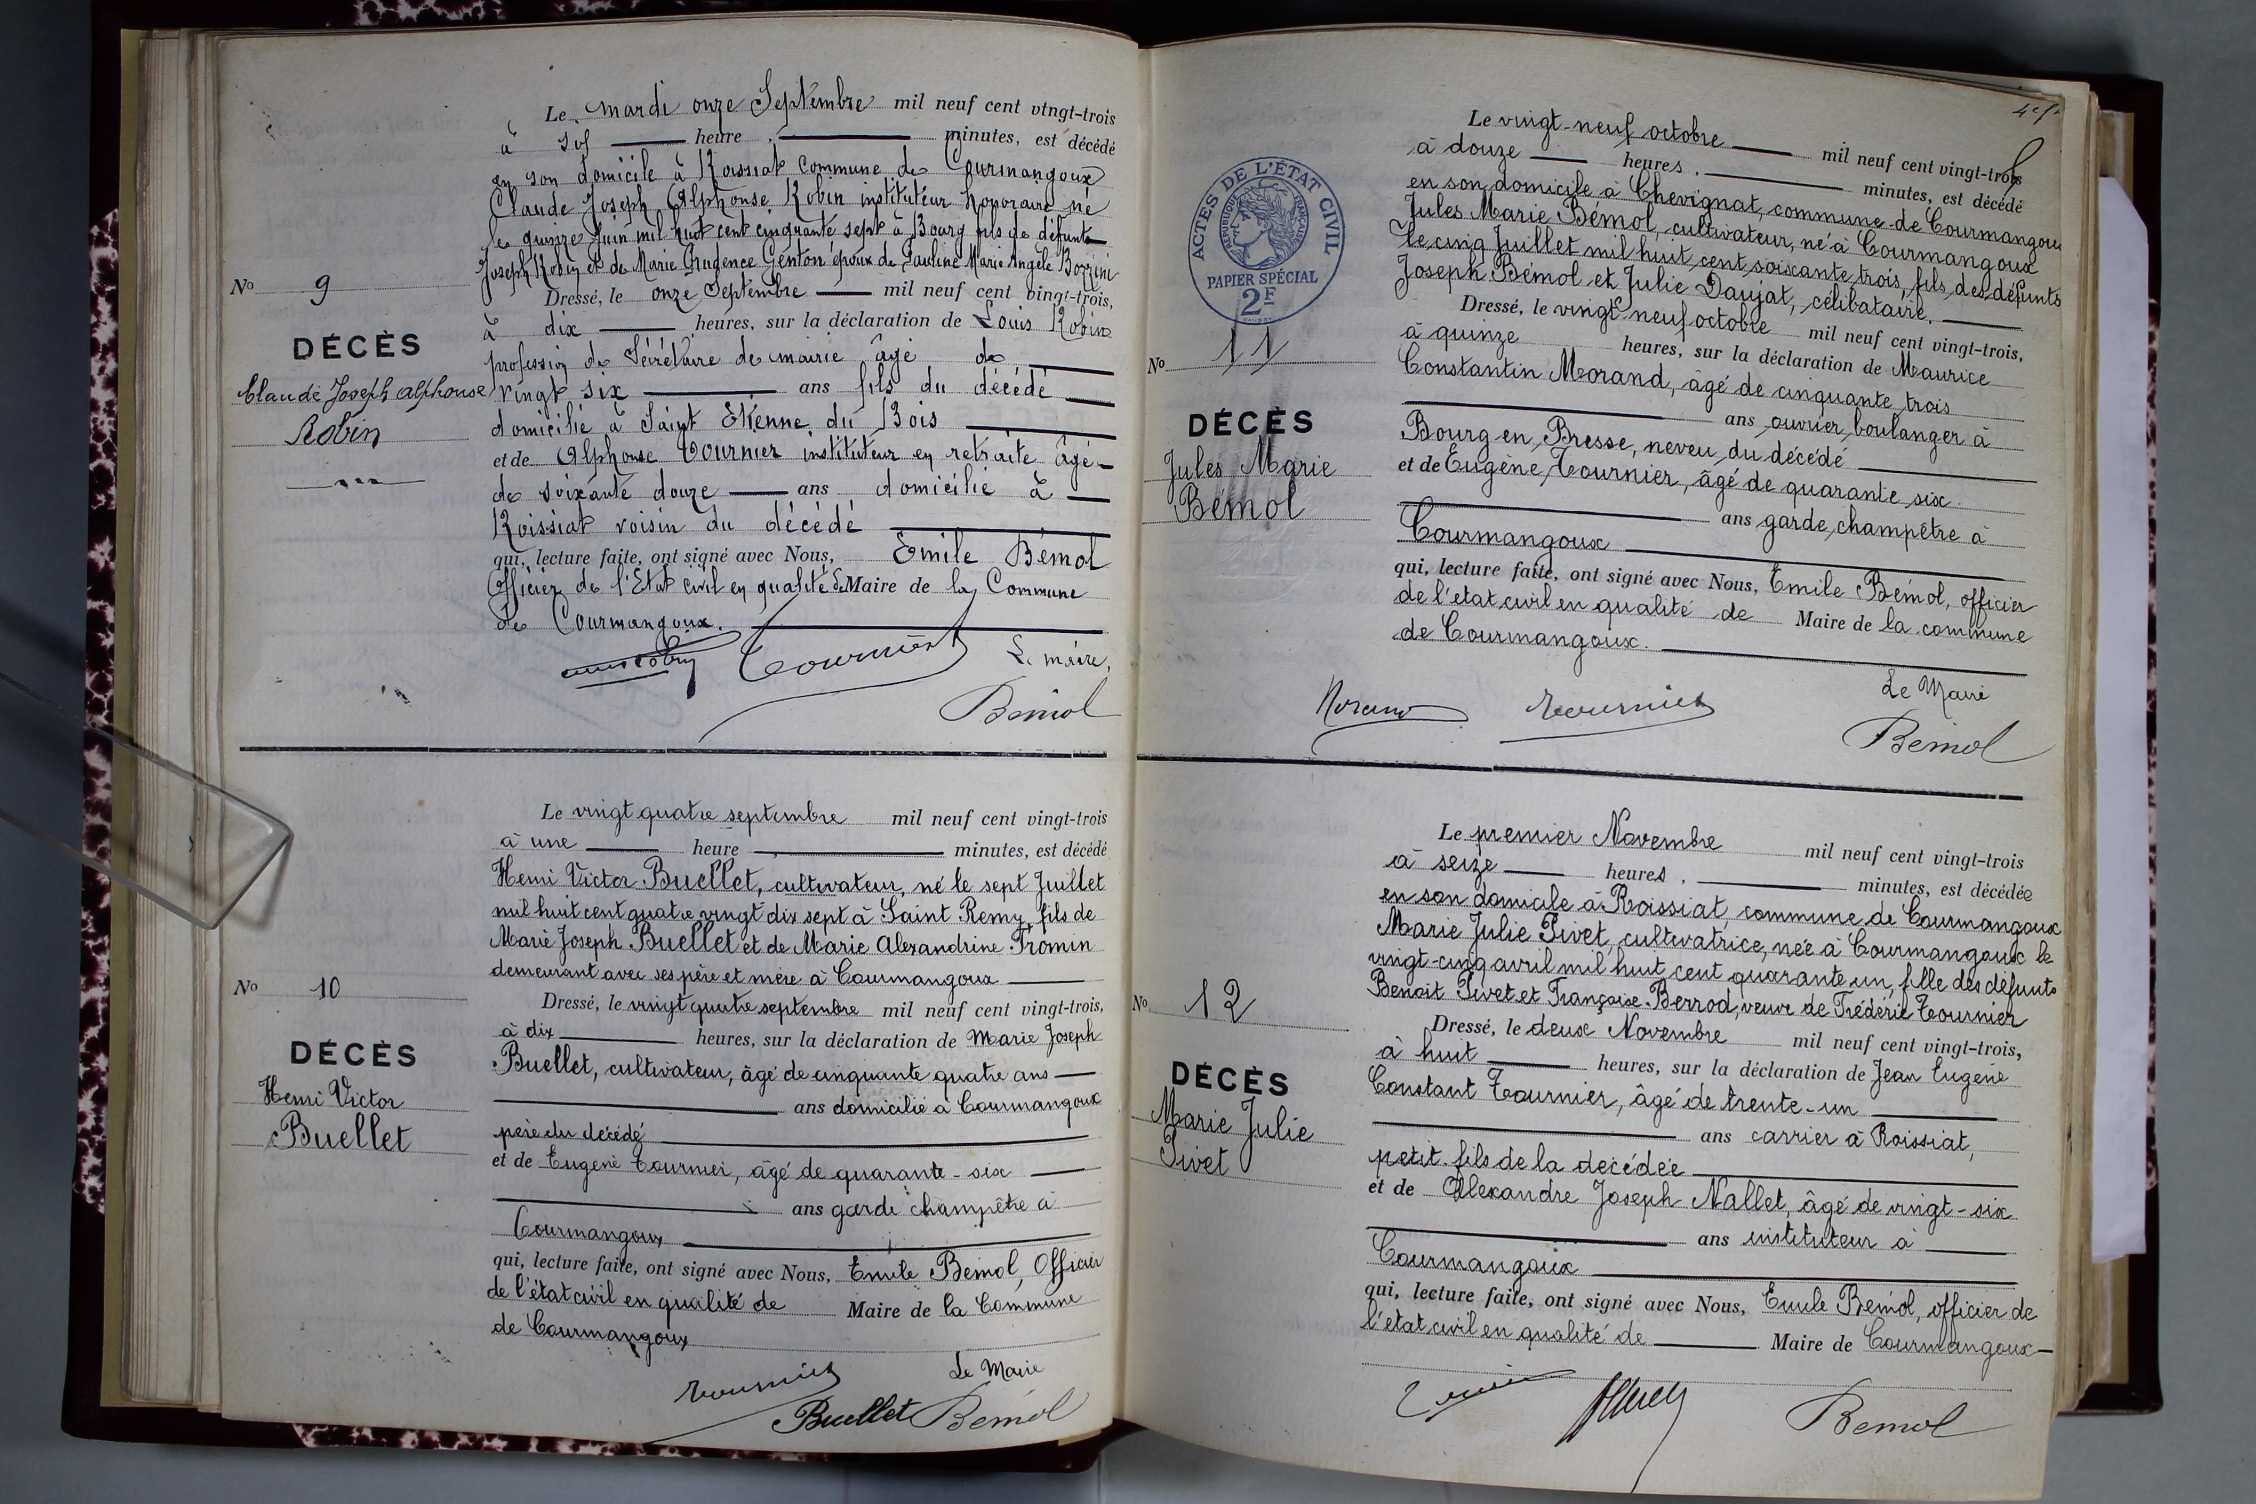 Le mardi onze Septembre mil neuf cent vingt-trois
à heure, minutes, est décédé
en son domicile à Roissiat commune de Courmangoux
Claude Joseph Alphonse Robin instituteur honoraire né
le quinze Juin mil huit cent cinquante sept à Bourg fils de défunts
Joseph Robin et de Marie Prudence Genton époux de Pauline Marie Angèle Bozzini
No 9
DÉCÈS
Claude Joseph Alphonse
Robin
Dressé, le onze Septembre mil neuf cent vingt-trois,
à dix heures, sur la déclaration de Louis Robin
profession de Sécrétaire de mairie âgé de
vingt six ans fils du décédé
domicilié à Saint Etienne du Bois
et de Alphonse Tournier instituteur en retraite âgé
de soixante douze ans domicilié à
Roissiat voisin du décédé
qui, lecture faite, ont signé avec Nous, Emile Bémol
Officier de l'Etat civil en qualité de Maire de la Commune
de Courmangoux.
Tournier Le maire,
Bémol
Le vingt quatre septembre mil neuf cent vingt-trois
à une heure minutes, est décédé
Henri Victor Buellet, cultivateur, né le sept Juillet
mil huit cent quatre vingt dix sept à Saint Remy, fils de
Marie Joseph Buellet et de Marie Alexandrine Fromin
demeurant avec ses père et mère à Courmangoux
No 10
DÉCÈS
Henri Victor
Buellet
Dressé, le vingt quatre septembre mil neuf cent vingt-trois,
à dix heures, sur la déclaration de Marie Joseph
Buellet, cultivateur, âgé de cinquante quatre ans
ans domicilié à Courmangoux
père du décédé
et de Eugène Tournier, âgé de quarante-six
ans garde champêtre à
Courmangoux
qui, lecture faite, ont signé avec Nous, Emile Bemol, Officier
de l'état civil en qualité de Maire de la Commune
de Courmangoux
Tournier Le Maire
Buellet Bémol
4e f.
Le vingt-neuf octobre mil neuf cent vingt-trois
à douze heures, minutes, est décédé
en son domicile à Chevignat, commune de Courmangoux
Jules Marie Bémol, cultivateur, né à Courmangoux
le cinq Juillet mil huit cent soixante trois, fils des défunts
Joseph Bémol et Julie Daujat, célibataire.
ACTES DE L'ÉTAT CIVIL
RÉPUBLIQUE FRANÇAISE
PAPIER SPÉCIAL
2F
No 11
DÉCÈS
Jules Marie
Bémol
Dressé, le vingt-neuf octobre mil neuf cent vingt-trois,
à quinze heures, sur la déclaration de Maurice
Constantin Morand, âgé de cinquante trois
ans ouvrier boulanger à
Bourg en Bresse, neveu du décédé
et de Eugène Tournier, âgé de quarante six
ans garde champêtre à
Courmangoux
qui, lecture faite, ont signé avec Nous, Emile Bémol, officier
de l'etat civil en qualité de Maire de la commune
de Courmangoux.
Morand Tournier Le Maire
Bemol
Le premier Novembre mil neuf cent vingt-trois
à seize heures, minutes, est décédée
en son domicile à Roissiat, commune de Courmangoux
Marie Julie Pivet, cultivatrice, née à Courmangoux le
vingt-cinq avril mil huit cent quarante un, fille des défunts
Benoit Pivet et Françoise Berrod, veuve de Frédéric Tournier
No 12
DÉCÈS
Marie Julie
Pivet
Dressé, le deux Novembre mil neuf cent vingt-trois,
à huit heures, sur la déclaration de Jean Eugène
Constant Tournier, âgé de trente-un
ans carrier à Roissiat,
petit-fils de la décédée
et de Alexandre Joseph Nallet, âgé de vingt-six
ans instituteur à
Courmangoux
qui, lecture faite, ont signé avec Nous, Emile Bemol, officier de
l'etat civil en qualité de Maire de Courmangoux
Bemol